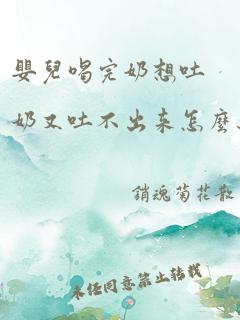 嬰兒喝完奶想吐
奶又吐不出来怎麼
銷魂菊花散
未经同意禁止转载